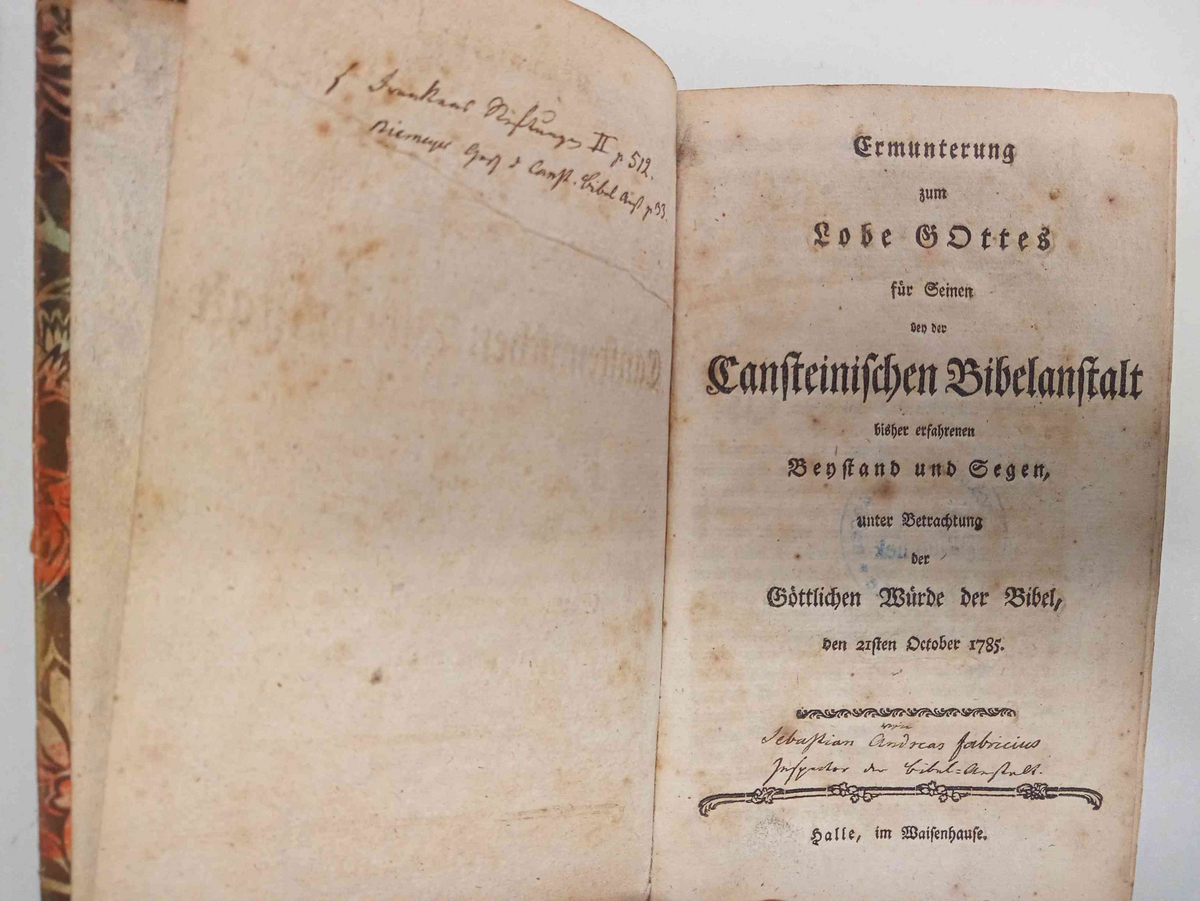 f Frankens Stiftungen II p 512.
Niemeyer Gesch d Canst. Bibel Anst p 33.
Ermunterung
zum
Lobe GOttes
für Seinen
bey der
Cansteinischen Bibelanstalt
bisher erfahrenen
Beystand und Segen,
unter Betrachtung
der
Göttlichen Würde der Bibel,
den 21sten October 1785.
von
Sebastian Andreas Fabricius
Inspector der Bibel=Anstalt.
Halle, im Waisenhause.